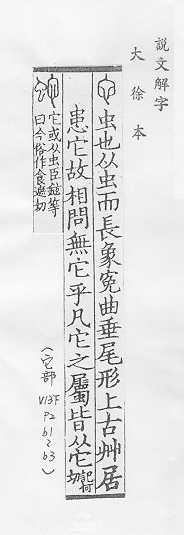 説文解字
大徐本
虫也从虫而長象冤曲垂尾形上古艸居
患它故相問無它乎凡它之屬皆从它託何切
它或从虫臣鉉等
曰今俗作食遮切
(它部
V13下
P2
b1~
b3)